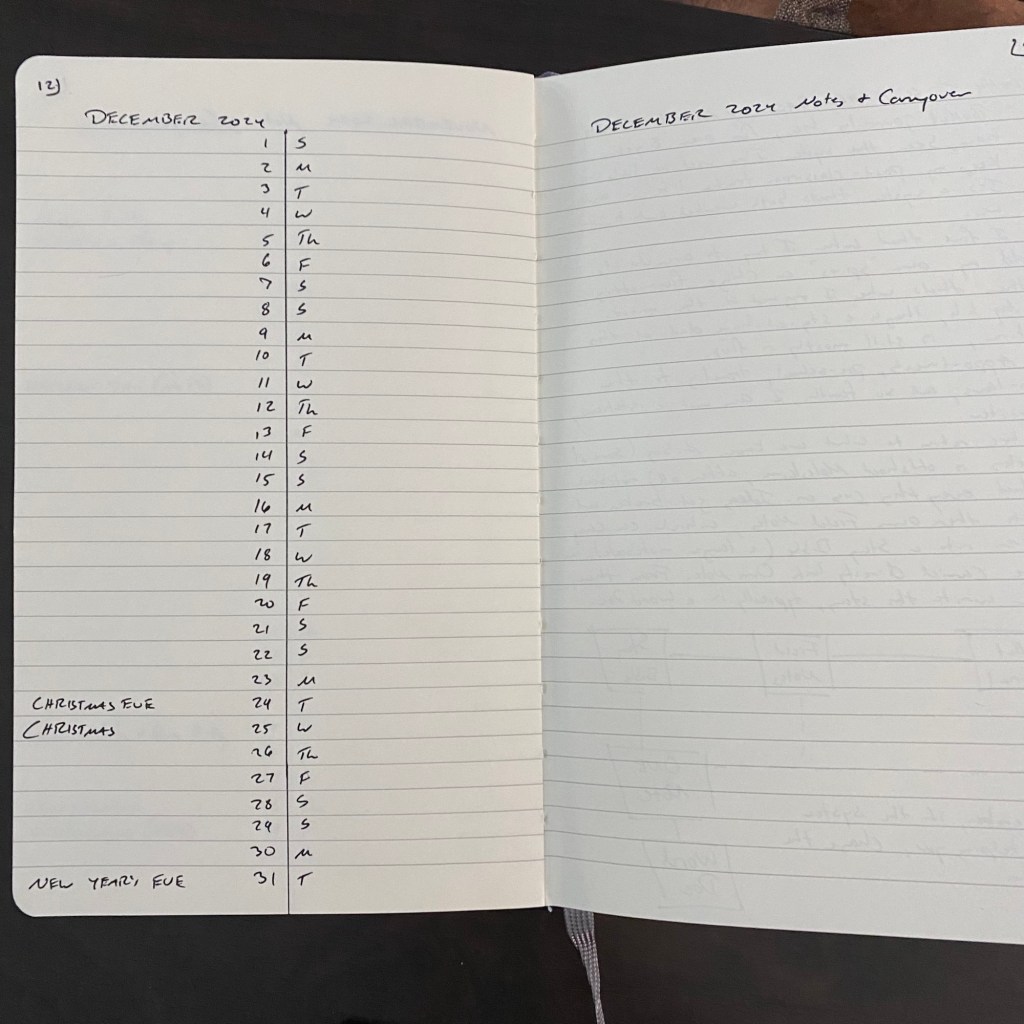 12)
DECEMBER 2024
1 S
2 M
3 T
4 W
5 Th
6 F
7 S
8 S
9 M
10 T
11 W
12 Th
13 F
14 S
15 S
16 M
17 T
18 W
19 Th
20 F
21 S
22 S
23 M
CHRISTMAS EVE 24 T
CHRISTMAS 25 W
26 Th
27 F
28 S
29 S
30 M
NEW YEAR'S EVE 31 T
DECEMBER 2024 Notes & Carryover